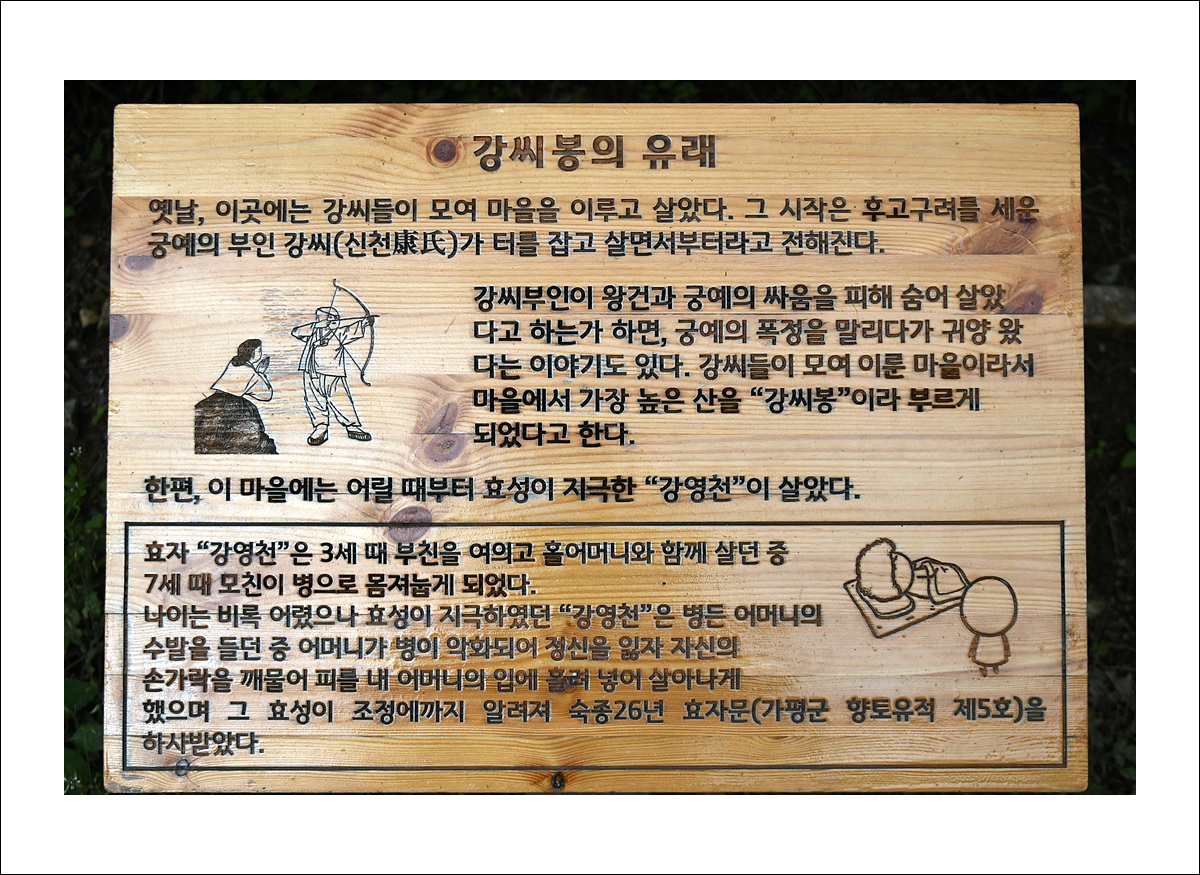 강씨봉의 유래
옛날, 이곳에는 강씨들이 모여 마을을 이루고 살았다. 그 시작은 후고구려를 세운
궁예의 부인 강씨(신천康氏)가 터를 잡고 살면서부터라고 전해진다.
강씨부인이 왕건과 궁예의 싸움을 피해 숨어 살았
다고 하는가 하면, 궁예의 폭정을 말리다가 귀양 왔
다는 이야기도 있다. 강씨들이 모여 이룬 마을이라서
마을에서 가장 높은 산을 “강씨봉”이라 부르게
되었다고 한다.
한편, 이 마을에는 어릴 때부터 효성이 지극한 “강영천”이 살았다.
효자 “강영천”은 3세 때 부친을 여의고 홀어머니와 함께 살던 중
7세 때 모친이 병으로 몸져눕게 되었다.
나이는 비록 어렸으나 효성이 지극하였던 “강영천”은 병든 어머니의
수발을 들던 중 어머니가 병이 악화되어 정신을 잃자 자신의
손가락을 깨물어 피를 내 어머니의 입에 흘려 넣어 살아나게
했으며 그 효성이 조정에까지 알려져 숙종26년 효자문(가평군 향토유적 제5호)을
하사받았다.